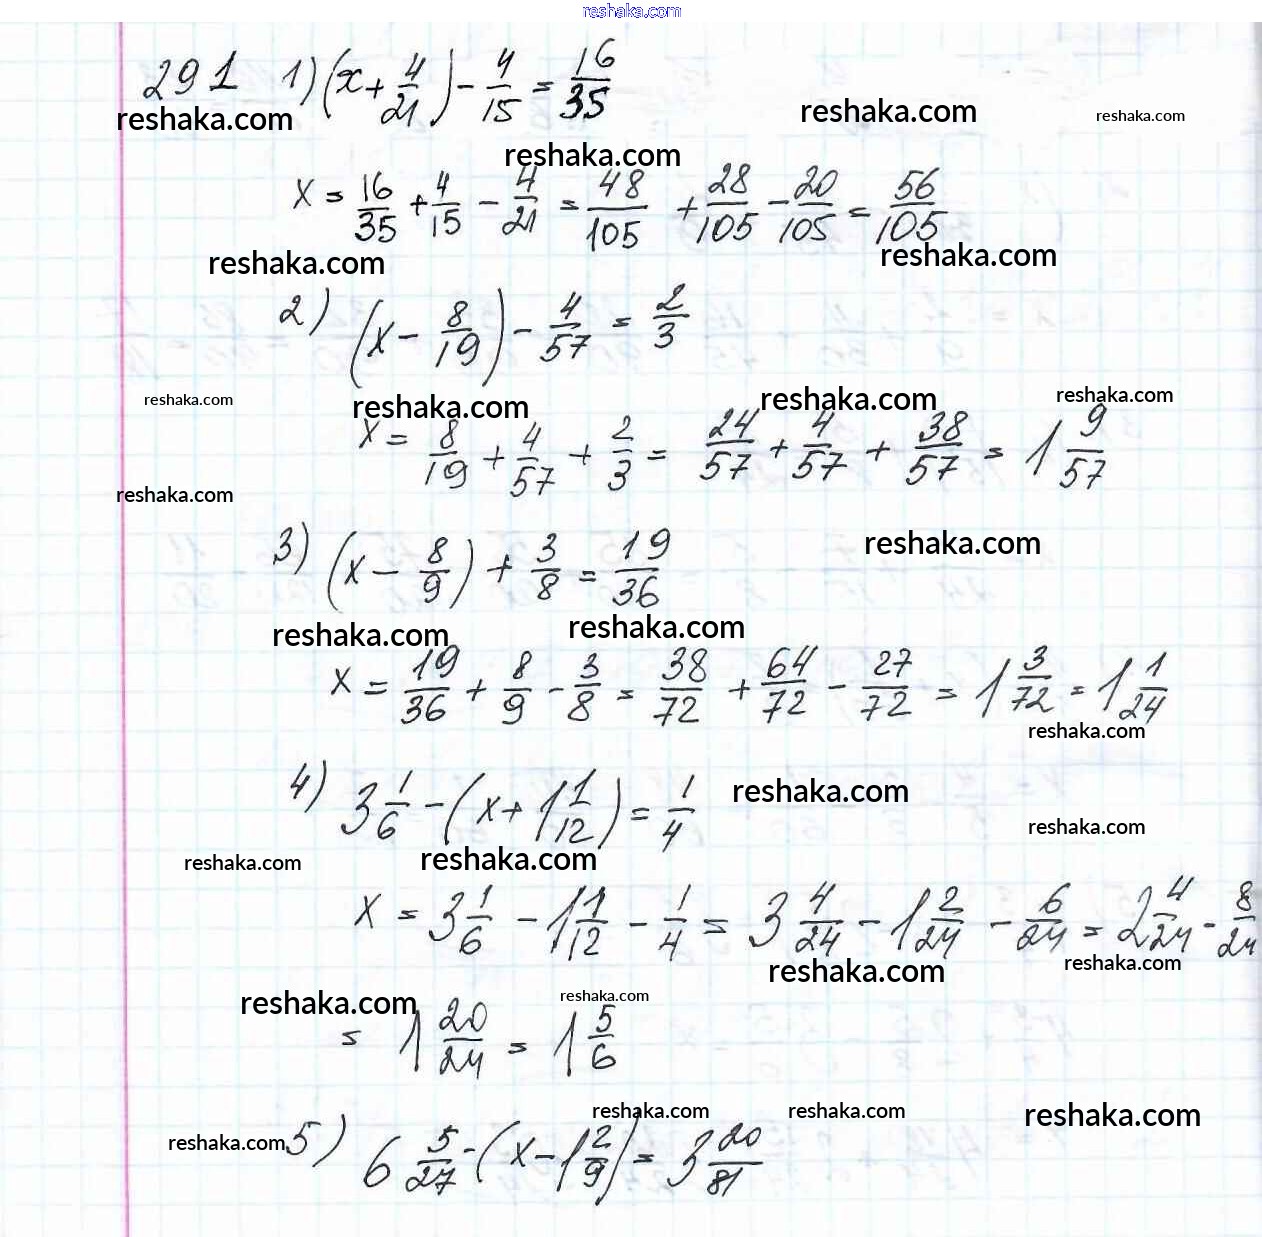 reshaka.com
291 1) (x + 4/21) - 4/15 = 16/35
reshaka.com reshaka.com reshaka.com
reshaka.com
x = 16/35 + 4/15 - 4/21 = 48/105 + 28/105 - 20/105 = 56/105
reshaka.com reshaka.com
2) (x - 8/19) - 4/57 = 2/3
reshaka.com reshaka.com reshaka.com reshaka.com
x = 8/19 + 4/57 + 2/3 = 24/57 + 4/57 + 38/57 = 1 9/57
reshaka.com
3) (x - 8/9) + 3/8 = 19/36
reshaka.com
reshaka.com reshaka.com
x = 19/36 + 8/9 - 3/8 = 38/72 + 64/72 - 27/72 = 1 3/72 = 1 1/24
reshaka.com
4) 3 1/6 - (x + 1 1/12) = 1/4
reshaka.com
reshaka.com
reshaka.com reshaka.com
x = 3 1/6 - 1 1/12 - 1/4 = 3 4/24 - 1 2/24 - 6/24 = 2 4/24 - 8/24
reshaka.com reshaka.com
reshaka.com reshaka.com
= 1 20/24 = 1 5/6
reshaka.com reshaka.com reshaka.com
reshaka.com
5) 6 5/27 - (x - 1 2/9) = 3 20/81